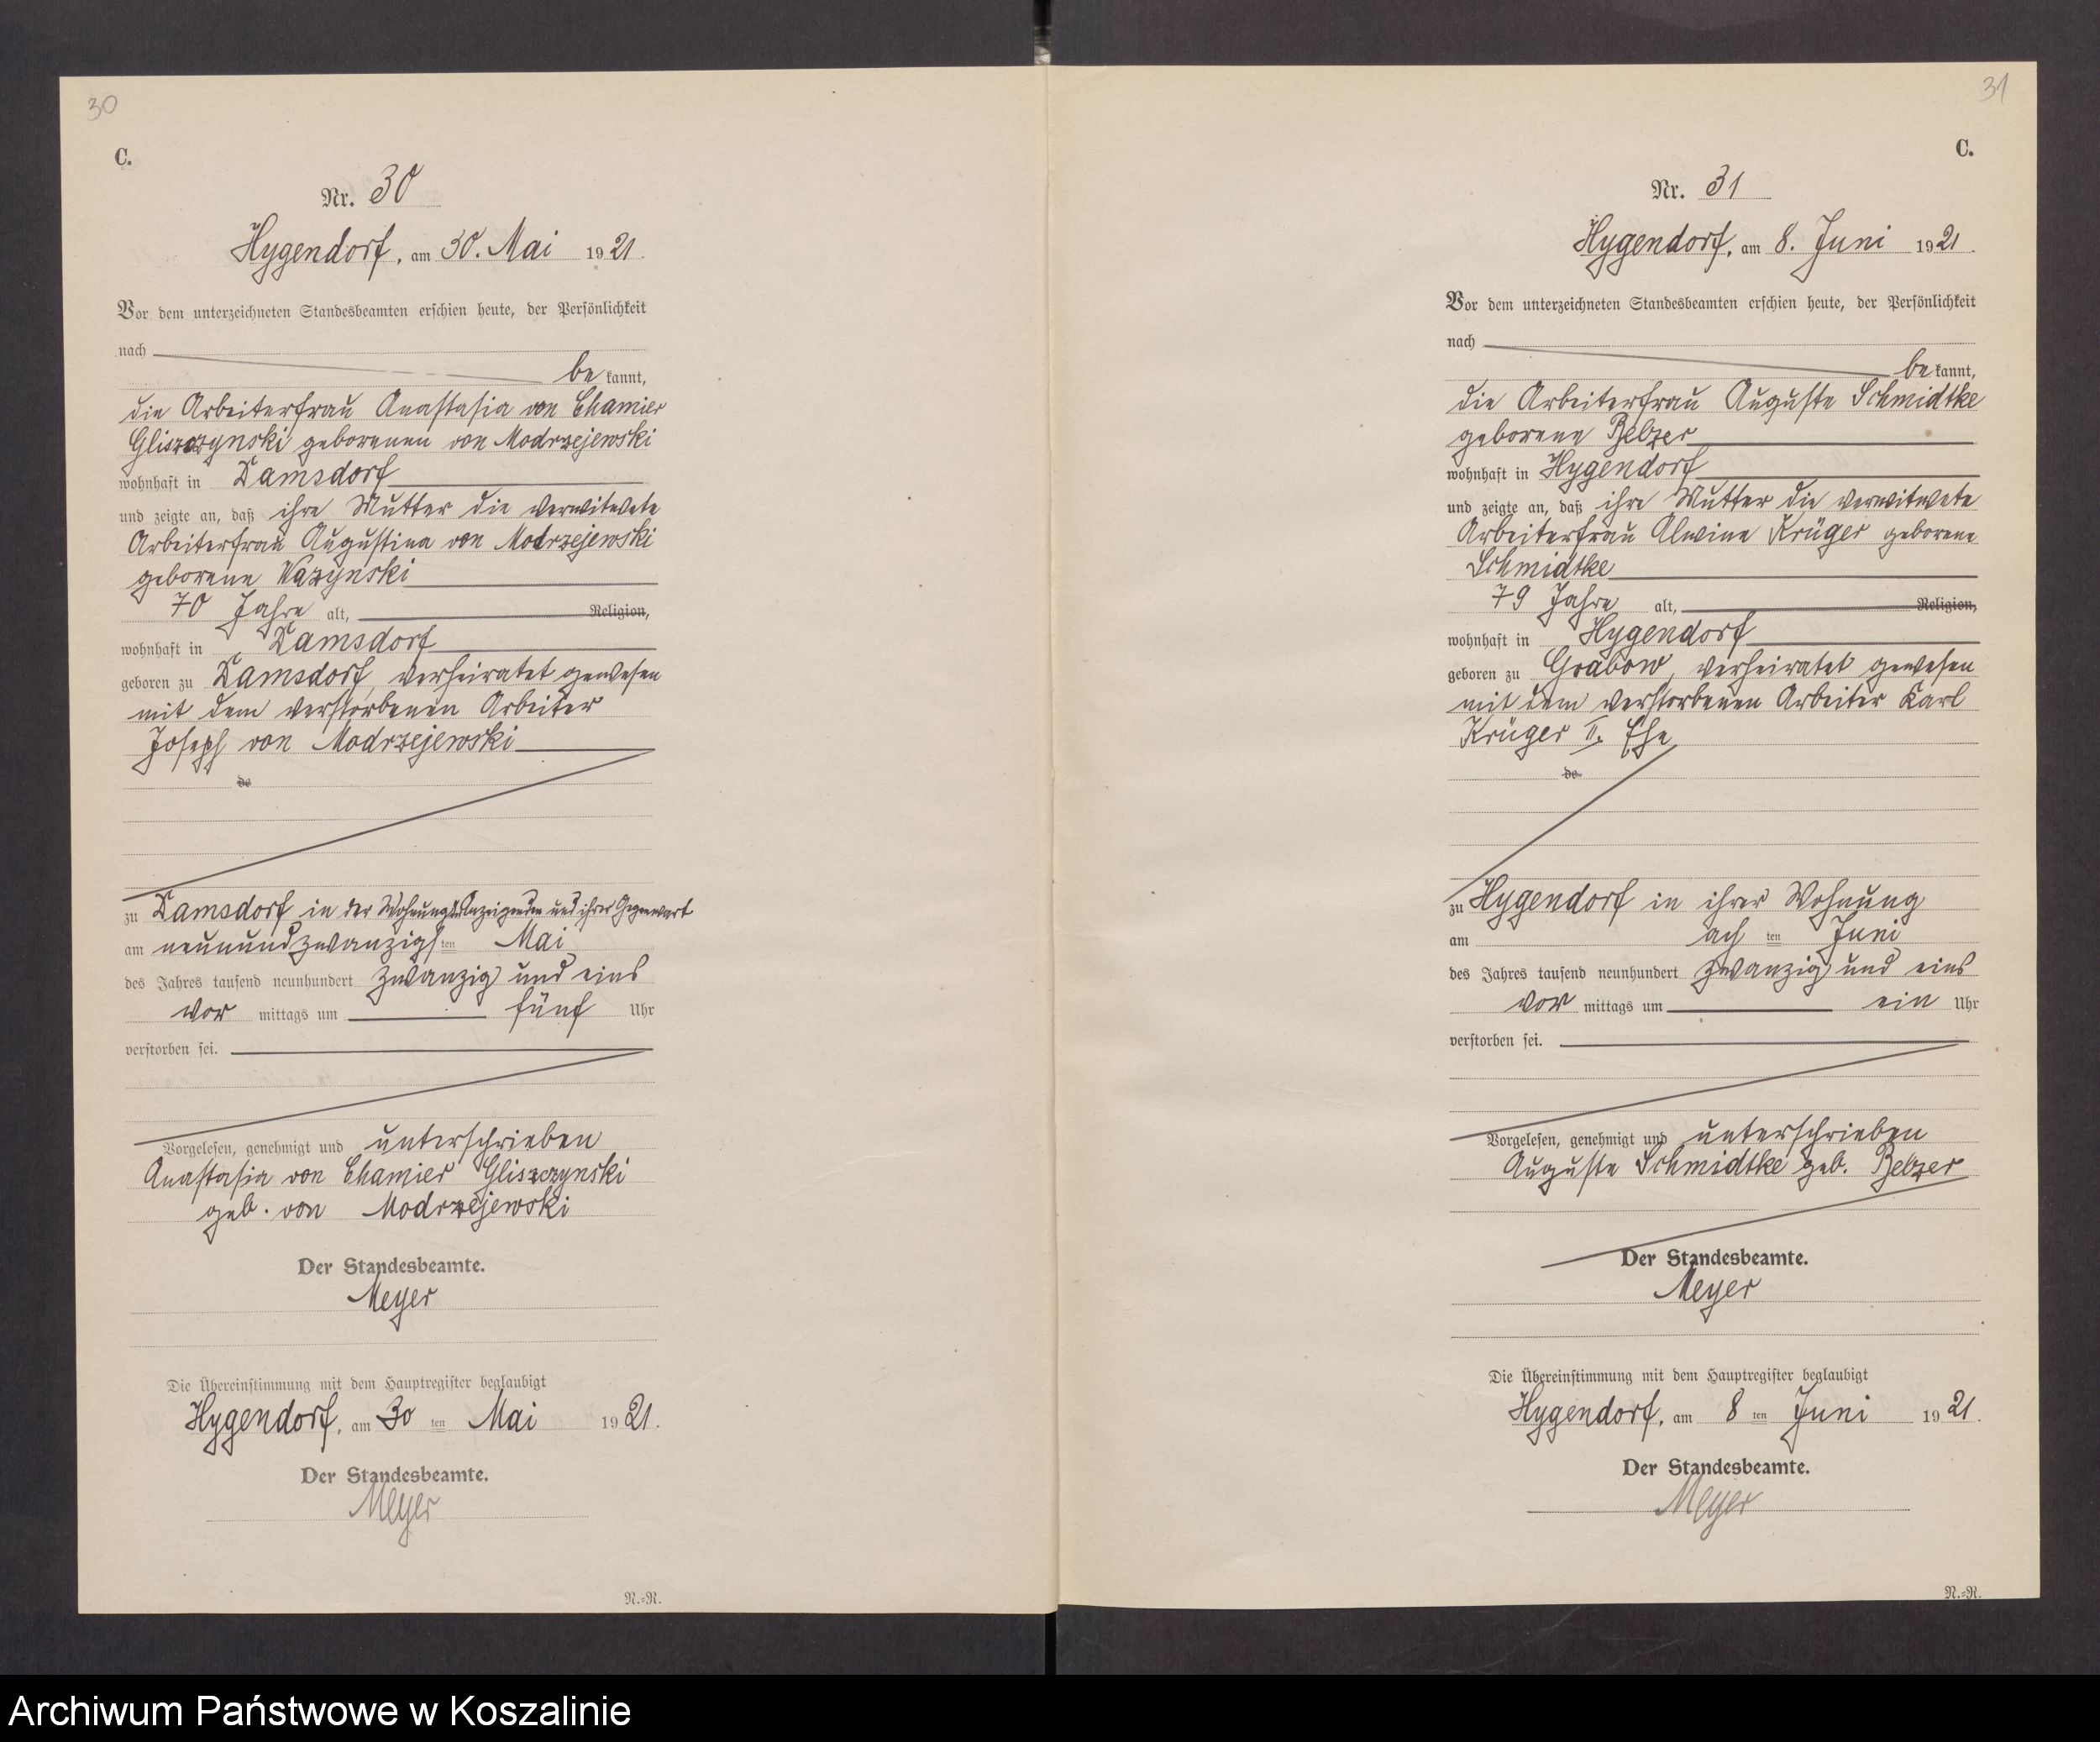 30
C.
Nr. 30
Hygendorf, am 30. Mai 1921.
Vor dem unterzeichneten Standesbeamten erschien heute, der Persönlichkeit
nach
be kannt,
die Arbeiterfrau Anastasia von Chamier
Gliszczynski geborenen von Modrzejewski
wohnhaft in Damsdorf
und zeigte an, daß ihre Mutter die verwitwete
Arbeiterfrau Augustina von Modrzejewski
geborene Wazynski
70 Jahre alt, Religion,
wohnhaft in Damsdorf
geboren zu Damsdorf, verheiratet gewesen
mit dem verstorbenen Arbeiter
Joseph von Modrzejewski
de
zu Damsdorf in der Wohnung der Anzeigenden und ihrer Gegenwart
am neunundzwanzigsten Mai
des Jahres tausend neunhundert zwanzig und eins
vor mittags um fünf Uhr
verstorben sei.
Vorgelesen, genehmigt und unterschrieben
Anastasia von Chamier Gliszczynski
geb. von Modrzejewski
Der Standesbeamte.
Meyer
Die Übereinstimmung mit dem Hauptregister beglaubigt
Hygendorf, am 30 ten Mai 1921.
Der Standesbeamte.
Meyer
N.=R.
31
C.
Nr. 31
Hygendorf, am 8. Juni 1921.
Vor dem unterzeichneten Standesbeamten erschien heute, der Persönlichkeit
nach
be kannt,
die Arbeiterfrau Auguste Schmidtke
geborene Belzer
wohnhaft in Hygendorf
und zeigte an, daß ihre Mutter die verwitwete
Arbeiterfrau Alwine Krüger geborene
Schmidtke
79 Jahre alt, Religion,
wohnhaft in Hygendorf
geboren zu Grabow, verheiratet gewesen
mit dem verstorbenen Arbeiter Karl
Krüger II. Ehe
de
zu Hygendorf in ihrer Wohnung
am ach ten Juni
des Jahres tausend neunhundert zwanzig und eins
vor mittags um ein Uhr
verstorben sei.
Vorgelesen, genehmigt und unterschrieben
Auguste Schmidtke geb. Belzer
Der Standesbeamte.
Meyer
Die Übereinstimmung mit dem Hauptregister beglaubigt
Hygendorf, am 8 ten Juni 1921.
Der Standesbeamte.
Meyer
N.=R.
Archiwum Państwowe w Koszalinie